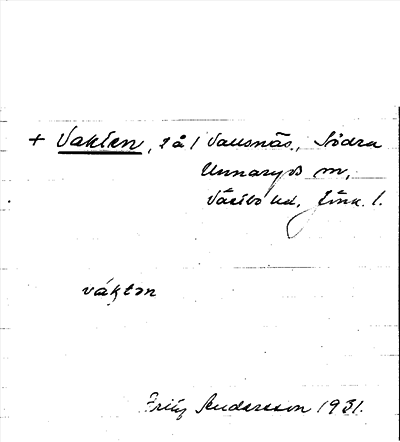 + Vakten, t å l Vallsnäs, Södra
Unnaryds sn,
Västbo hd, Jönk. l.
váktən
Fritz Andersson 1931.